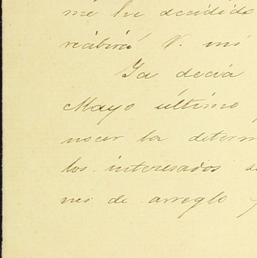 me he decidido
recibirá V. mi
Ya decia
Mayo último
nocer la determ
los interesados a
nes de arreglo y